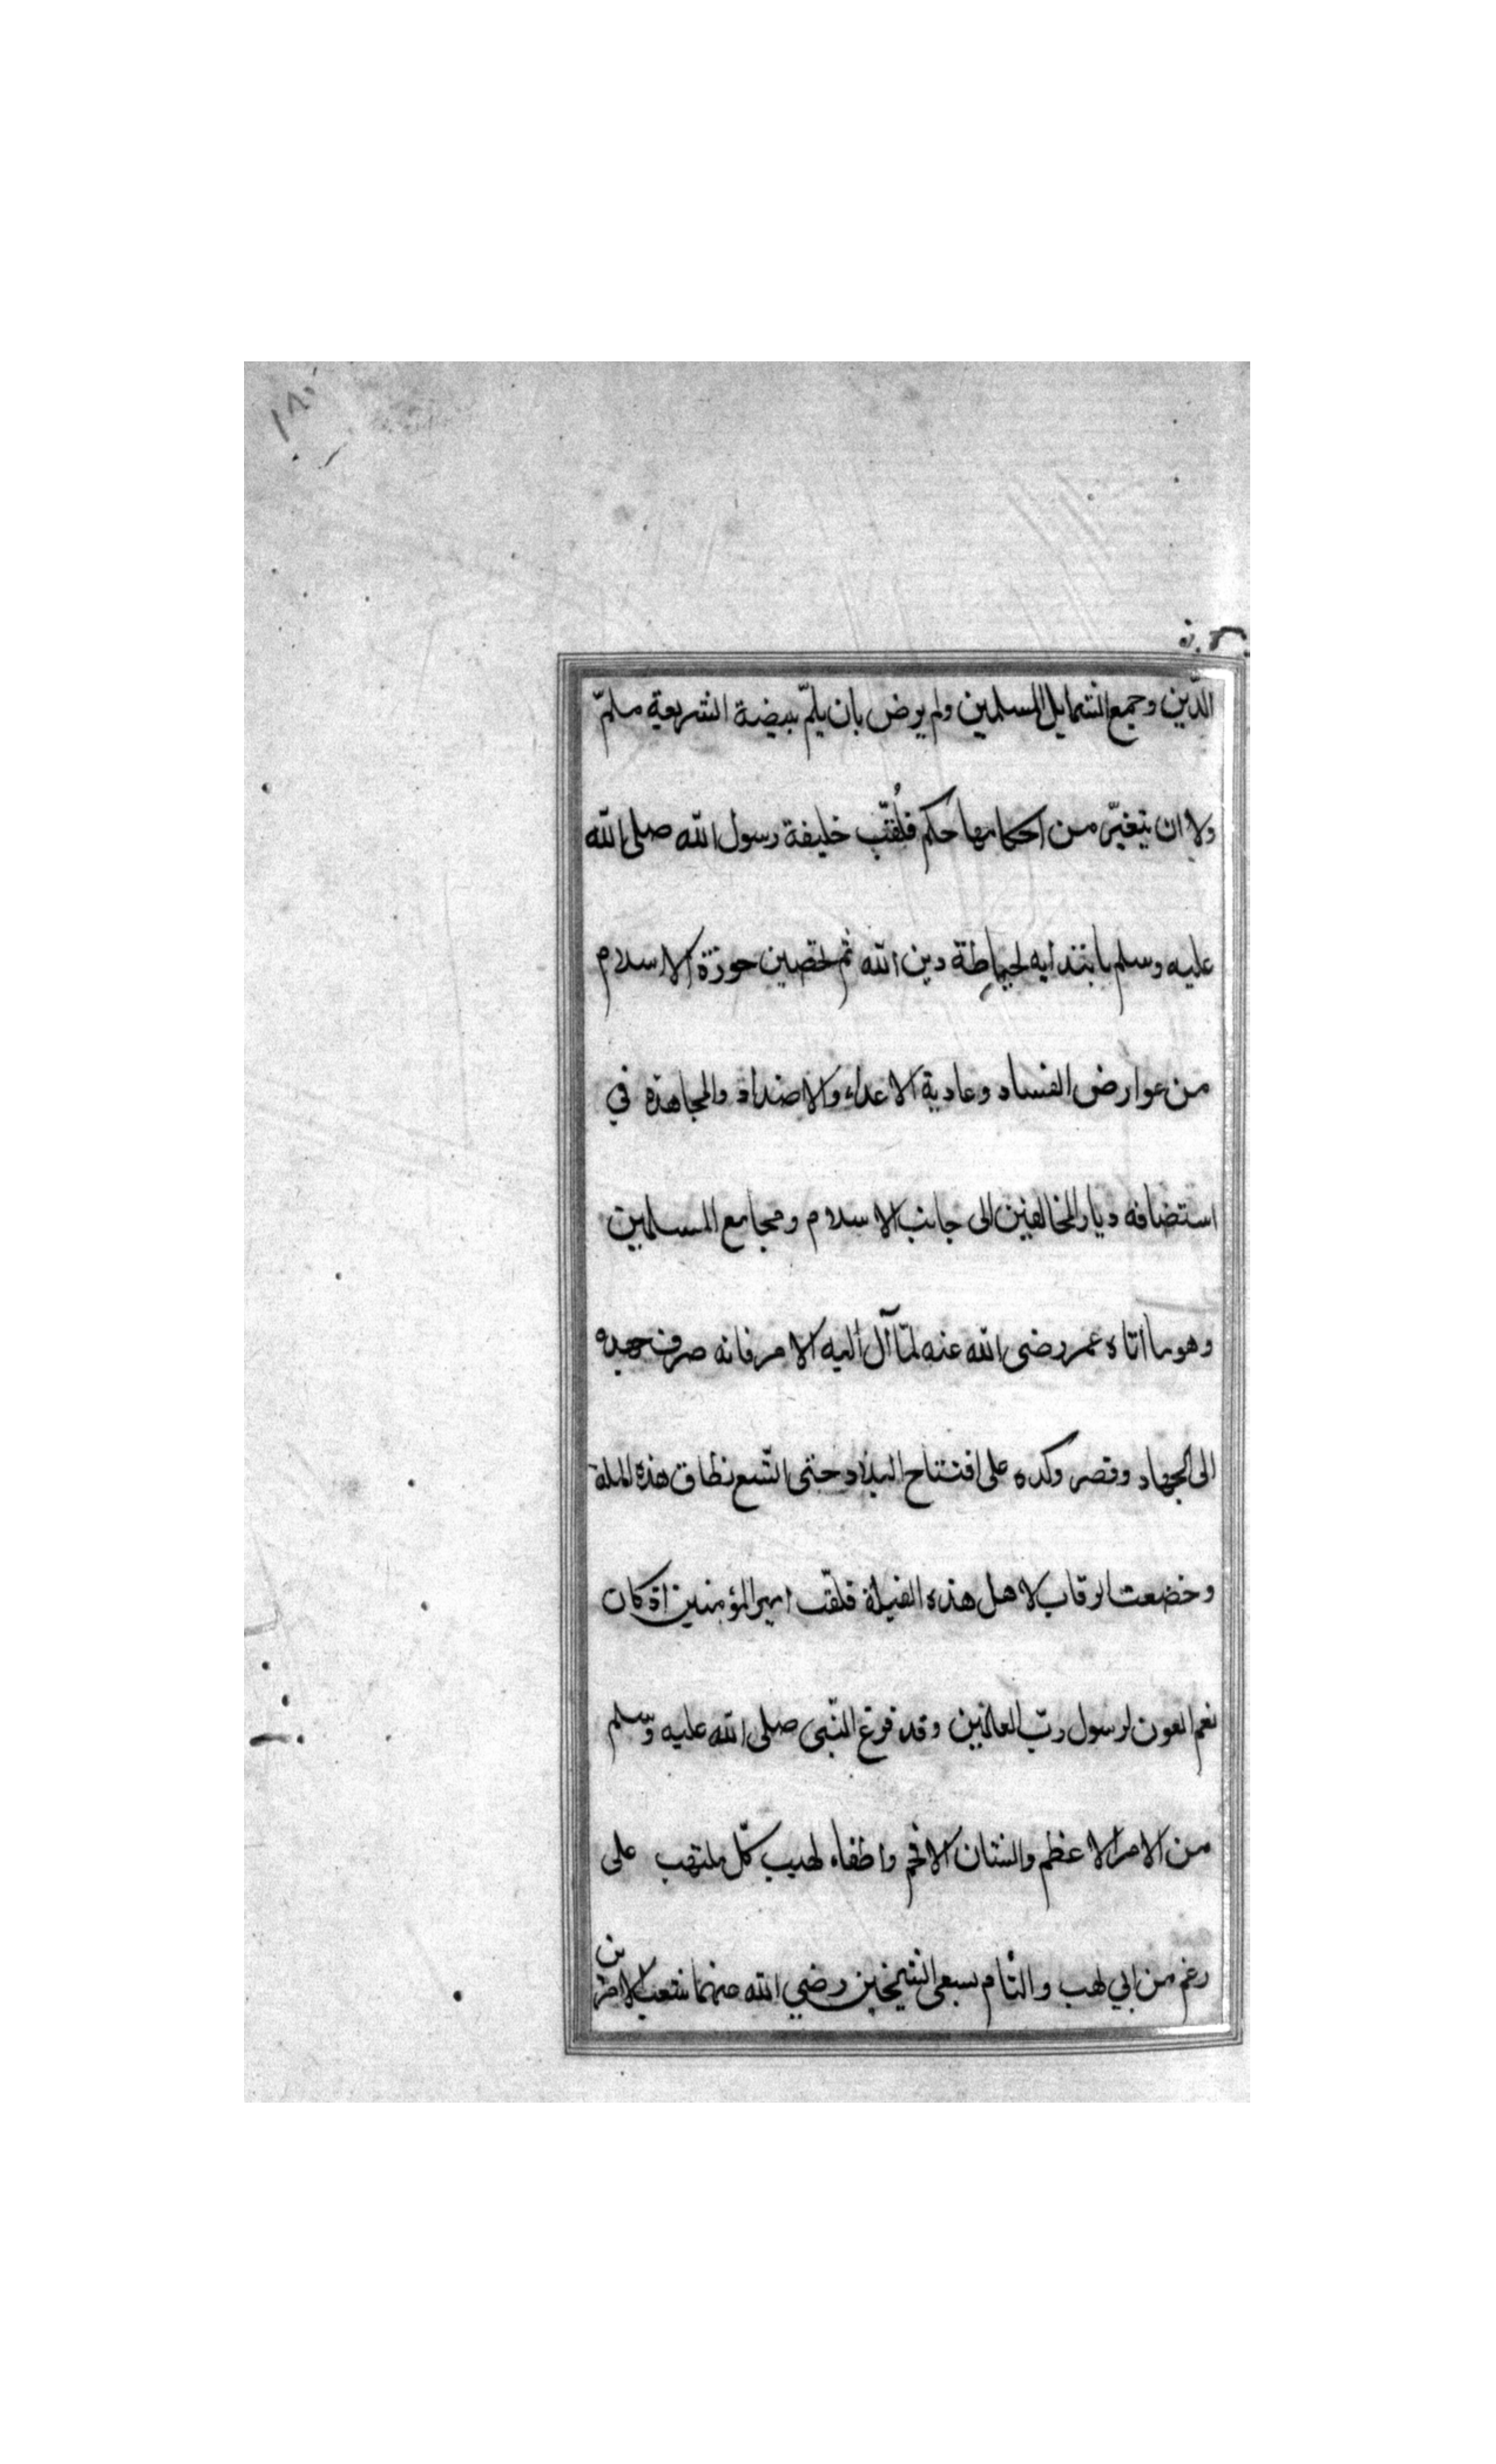 ١٨٠
الدّين وجميع الشمايل المسلمين ولم يرض بان يلمّ ببيضة الشريعة ملمّ
ولا ان يتغيّر من احكامها حكم فلُقّب خليفة رسول الله صلى الله
عليه وسلم بابتدايه لحياطة دين الله ثم لتحصين حوزة الاسلام
من عوارض الفساد وعادية الاعداء والاضداد والمجاهدة في
استضافه ديار المخالفين الى جانب الاسلام ومجامع المسلمين
وهو ما اتاه عمر رضى الله عنه لمّا آل اليه الامر فانه صرف جهده
الى الجهاد وقصر وكده على افتتاح البلاد حتى اتّسع نطاق هذه الملة
وخضعت الرقاب لاهل هذه القبلة فلقّب امير المؤمنين اذ كان
نعم العون لرسول ربّ العالمين وقد فرغ النّبى صلى الله عليه وسلم
من الامر الاعظم والشان الافخم واطفاء لهيب كلّ ملتهب على
رغم من ابي لهب والتام بسعى الشيخين رضي الله عنهما شعب الامرين